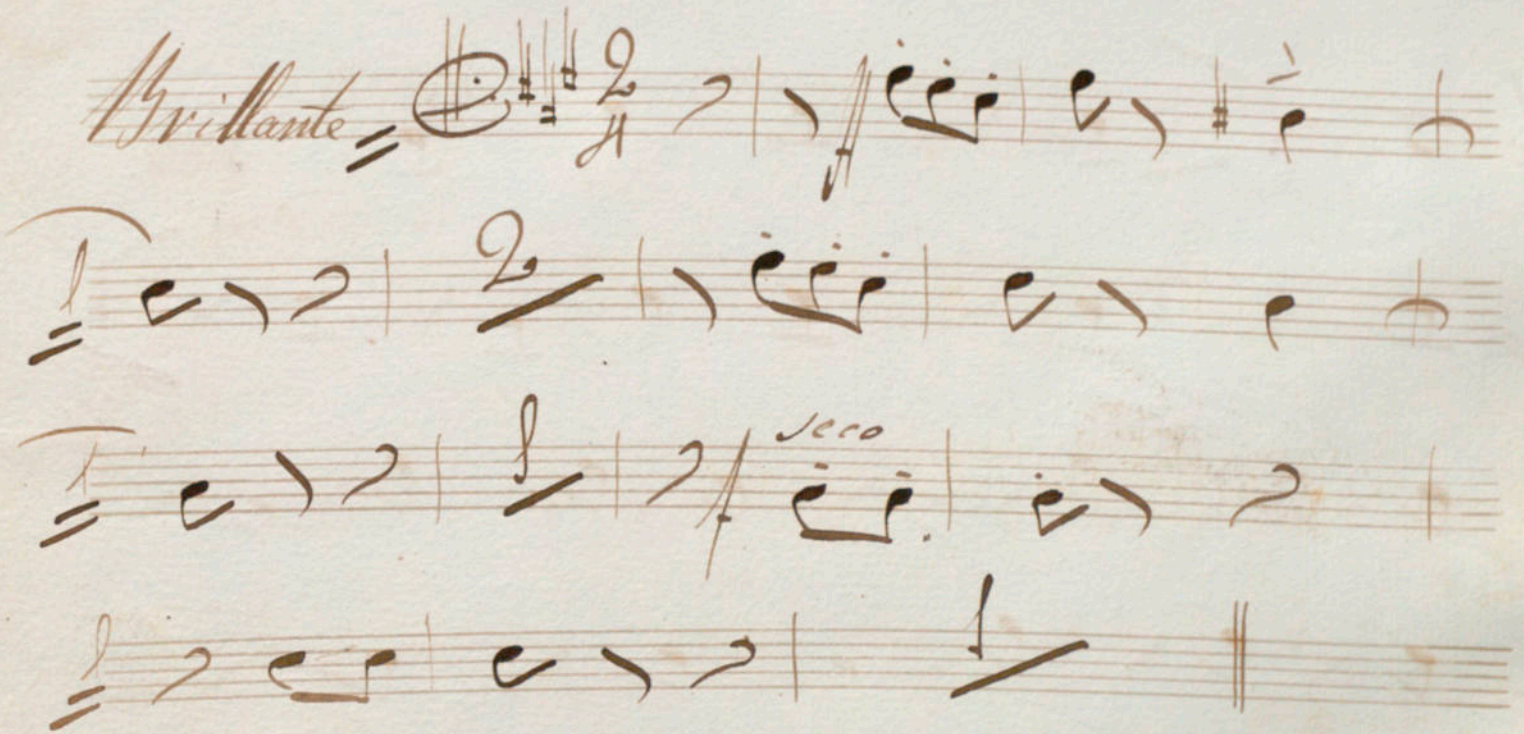 Brillante 2 4 ff
2
1 f seco
1